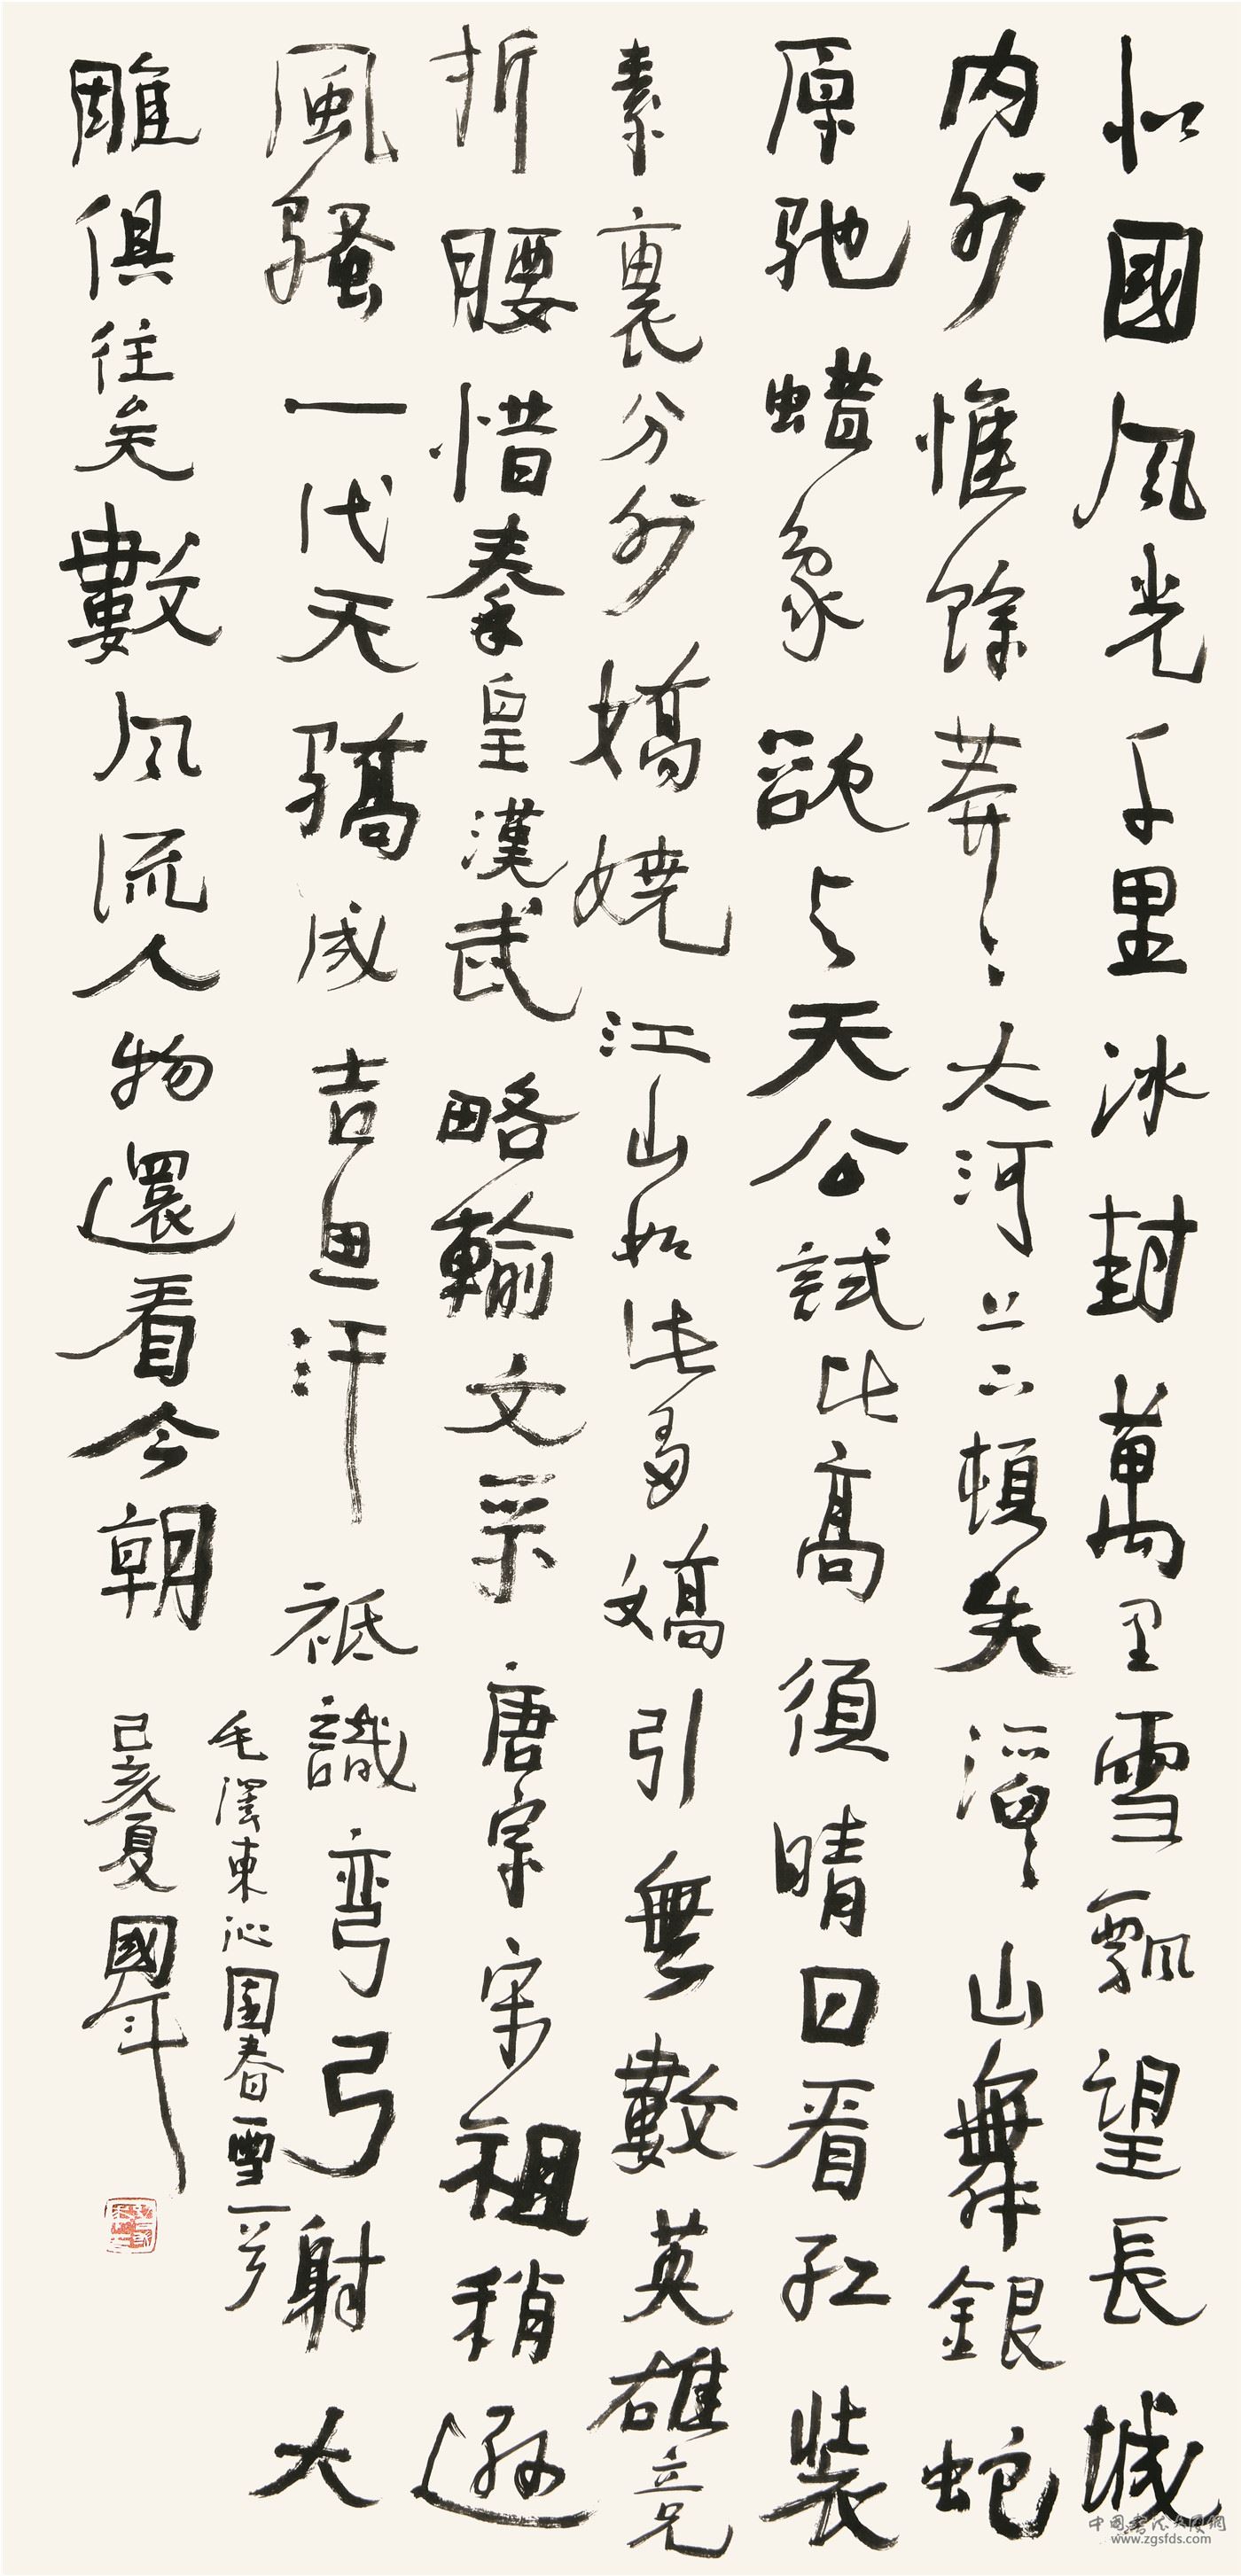 北國風光千里冰封萬里雪飄望長城
内外惟餘莽々大河上下頓失滔々山舞銀蛇
原馳蜡象欲与天公試比高須晴日看紅裝
素裹分外嬌嬈江山如此多嬌引無數英雄竞
折腰惜秦皇漢武略輸文采唐宗宋祖稍遜
風騷一代天驕成吉思汗祗識弯弓射大
雕俱往矣數風流人物還看今朝
毛澤東沁園春雪一首
己亥夏國年
www.zgsfds.com